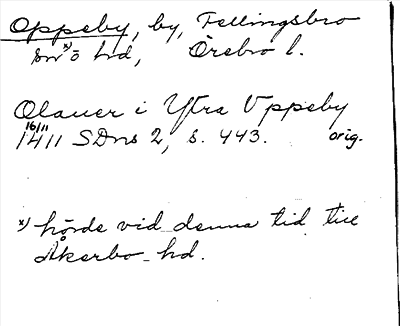 Oppeby, by, Fellingsbro
sn x) ö hd, Örebro l.
Olauer i Ytra Uppeby
16/11
1411 SDns 2, s. 443. orig.
x) hörde vid denna tid till
Åkerbo hd.